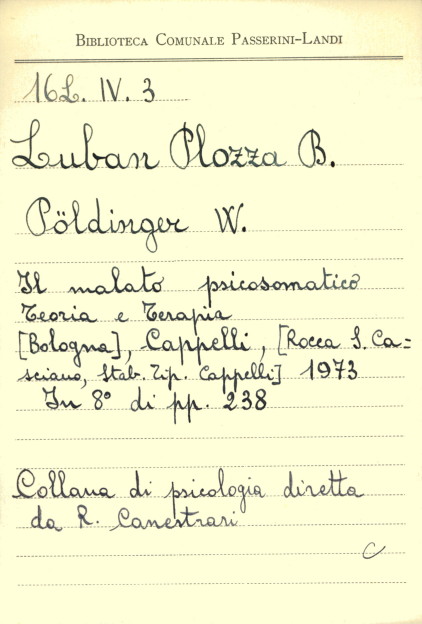 BIBLIOTECA COMUNALE PASSERINI-LANDI
16L. IV. 3
Luban Plozza B.
Pöldinger W.
Il malato psicosomatico
Teoria e Terapia
[Bologna], Cappelli, [Rocca S. Ca=
sciano, Stab. Tip. Cappelli] 1973
In 8° di pp. 238
Collana di psicologia diretta
da R. Canestrari
C